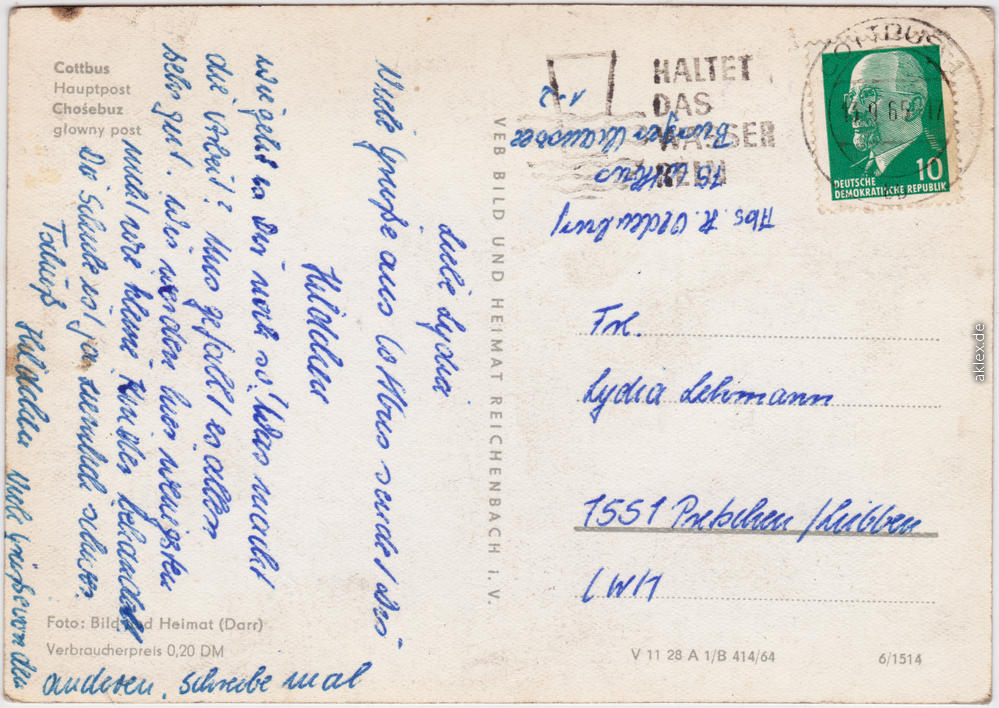 Cottbus
Hauptpost
Chośebuz
głowny post
Liebe Lydia
Viele Grüße aus Cottbus sendet Dir
Hildchen
Wie geht's Dir noch so? Was macht
die Arbeit? Uns gefällt es allen
sehr gut. Wir werden hier wenigsten
nicht wie kleine Kinder behandelt
Die Schule ist ja ziemlich schwer.
Tschüß Hildchen Viele Grüße von den
anderen. Schreibe mal
Foto: Bild und Heimat (Darr)
Verbraucherpreis 0,20 DM
VEB BILD UND HEIMAT REICHENBACH i. V.
HALTET
DAS
WASSER
REIN
COTTBUS 1
DEUTSCHE
DEMOKRATISCHE REPUBLIK
10
Abs. R. Oldenburg
75 Cottbus
Frl.
Lydia Lehmann
1551 Pretschen/Lübben
LWH
V 11 28 A 1/B 414/64
6/1514
aklex.de